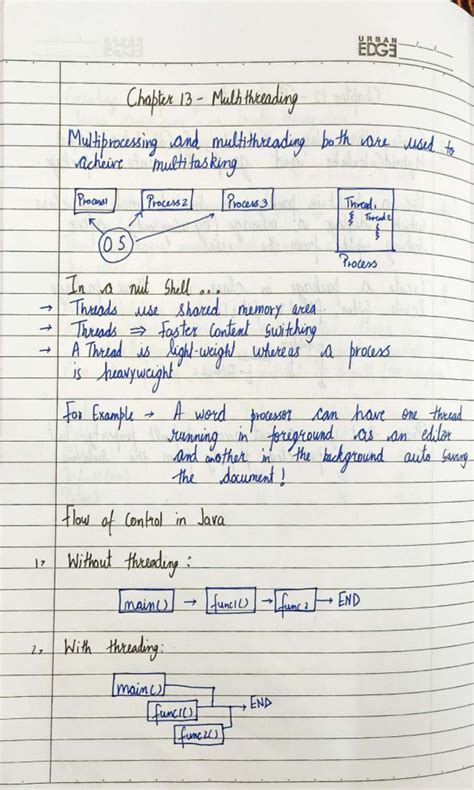 URBAN
EDGE
Chapter 13 - Multithreading
Multiprocessing and multithreading both are used to
acheive multitasking
Process1 Process2 Process3 Thread1
Thread2
OS
Process
In a nut shell...
→ Threads use shared memory area
→ Threads ⇒ Faster Content Switching
→ A Thread is light-weight whereas a process
is heavyweight
For Example → A word processor can have one thread
running in foreground as an editor
and another in the background auto saving
the document!
Flow of control in Java
1, Without threading:
main() → func1() → func2 → END
2, With threading:
main()
func1() → END
func2()